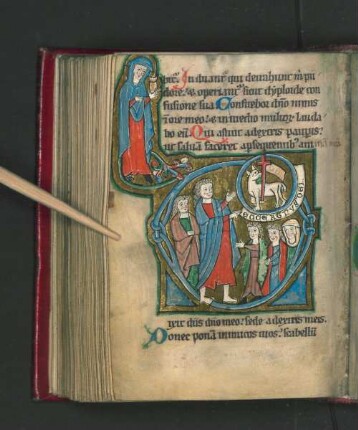 Induant qui detrahunt m pu
dore. & operiant sicut dyploide con
fusione sua Confitebor dno nimis
in ore meo. & in medio multoz lauda
bo eu Qui astitit a dextris paupis.
ut salua faceret a psequentib; am
ECCE AGNUS
xit dns dno meo. sede a dextris meis.
Donec pona inimicos tuos. scabellu